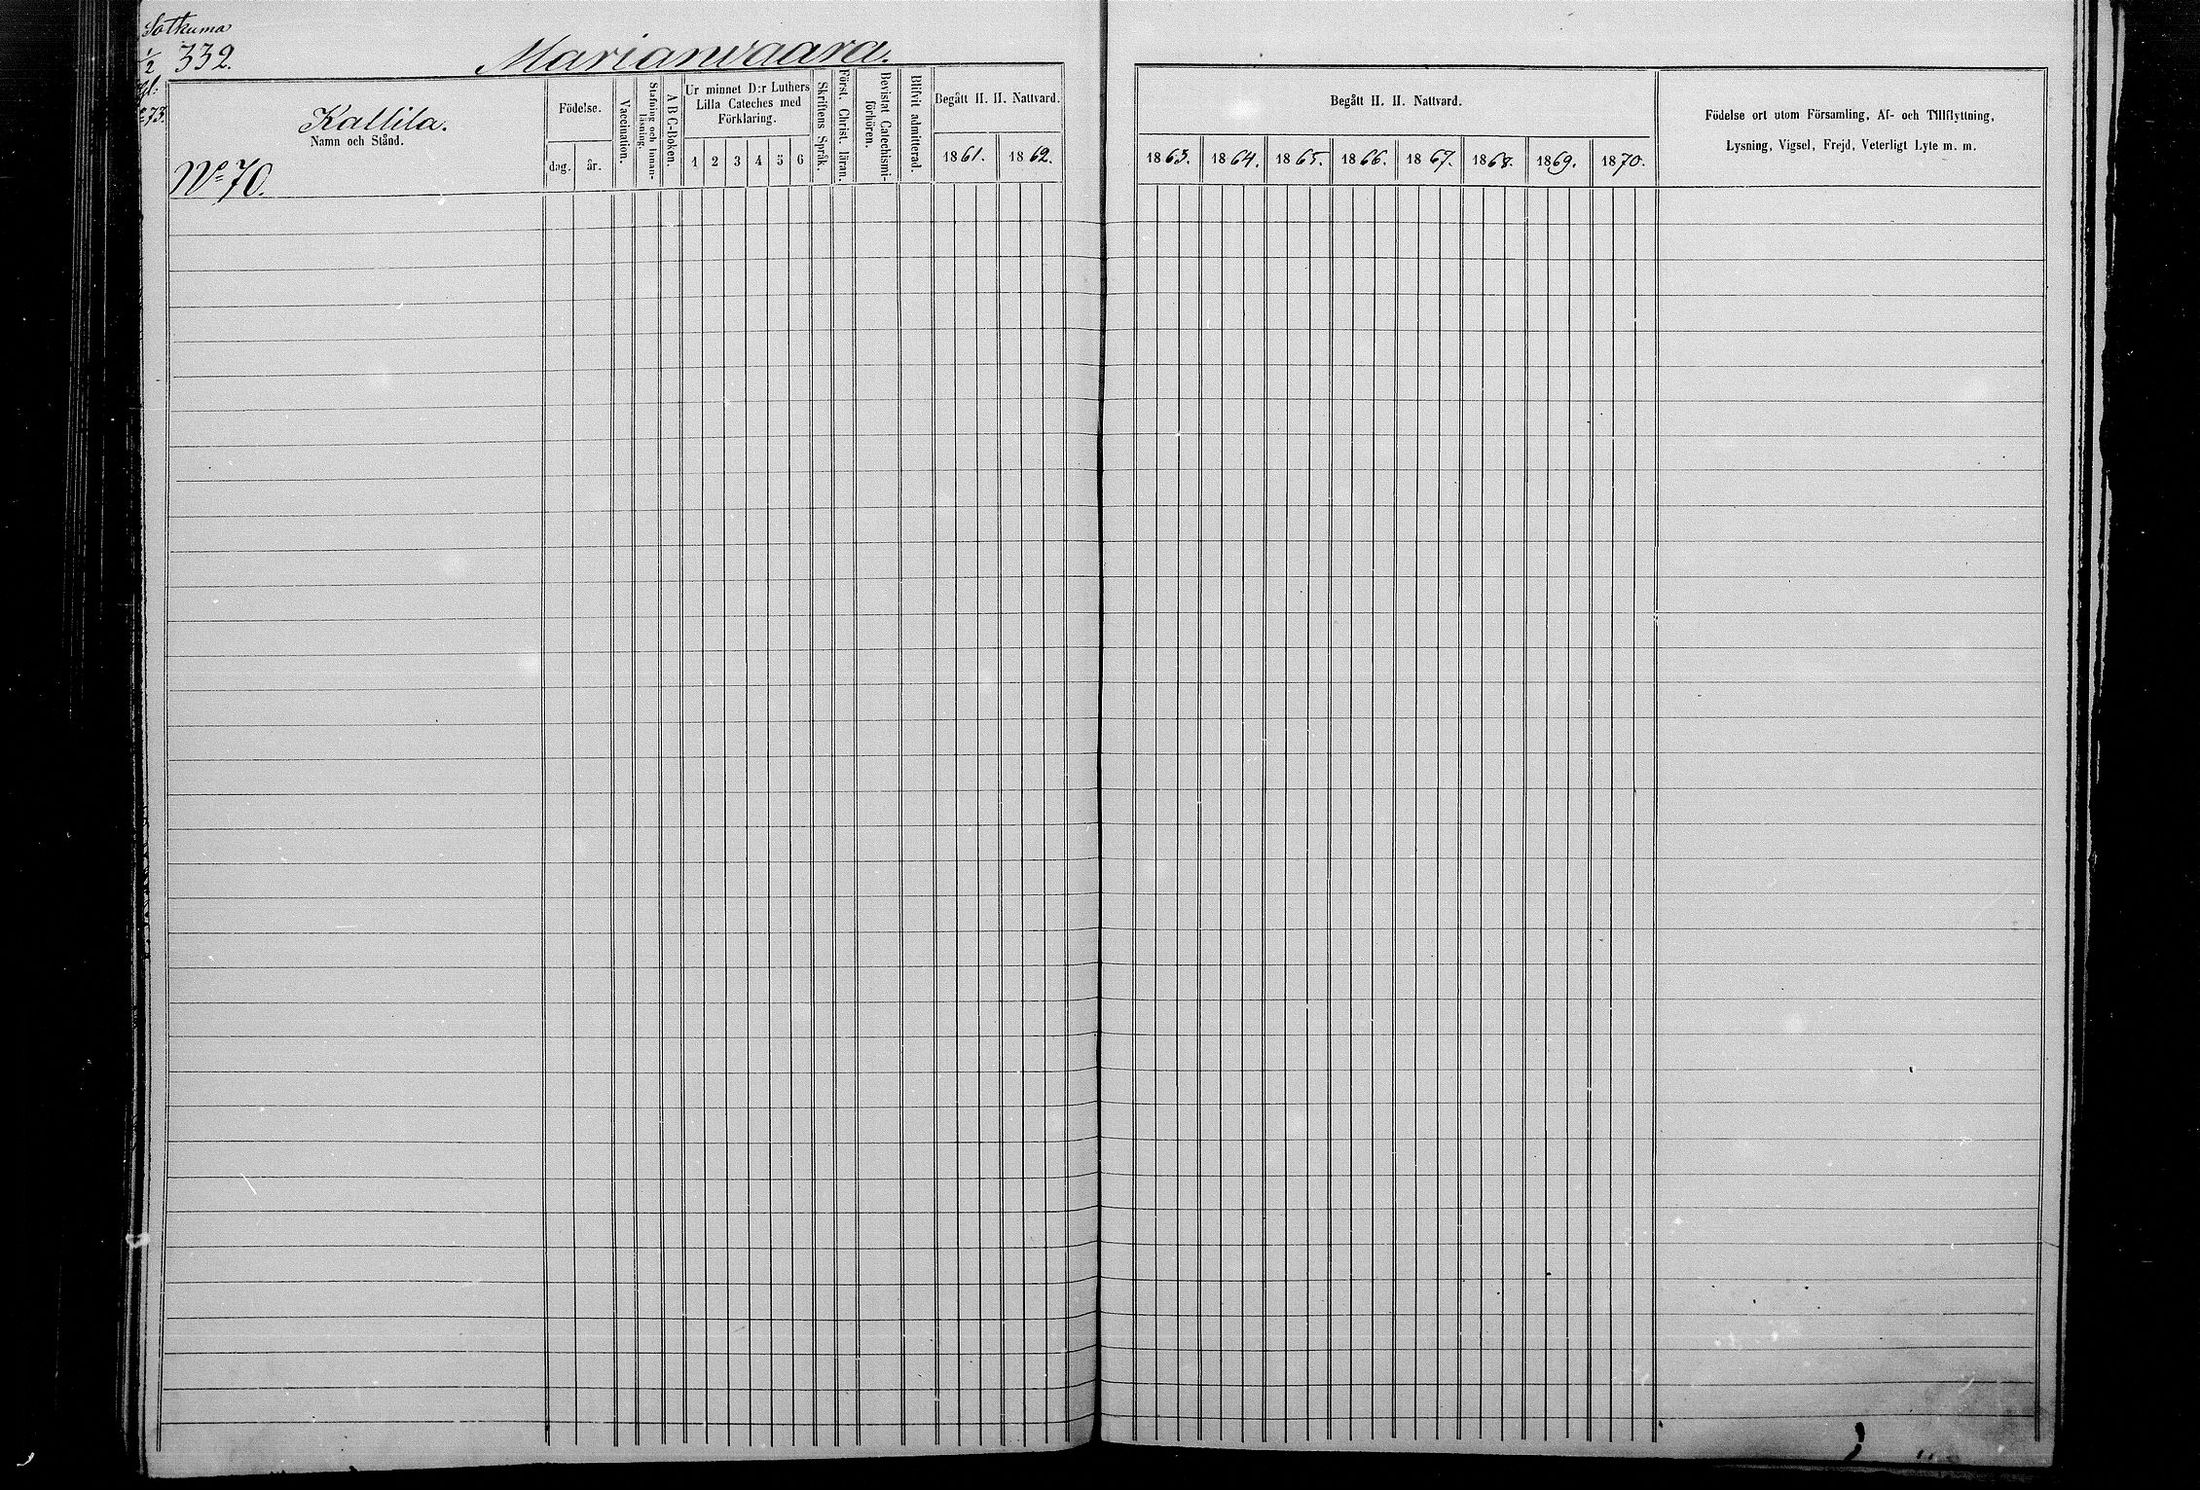 Sotkuma
1/2 332.
Marianvaara.
73.
Kallila.
Namn och Stånd.
No 70.
Födelse.
dag. år.
Vaccination.
Stafning och Innan-
läsning.
A B C-Boken.
Ur minnet D:r Luthers
Lilla Cateches med
Förklaring.
1 2 3 4 5 6
Skriftens Språk.
Först. Christ. läran.
Bevistat Catechismi-
förhören.
Blifvit admitterad.
Begått H. H. Nattvard.
1861. 1862.
Begått H. H. Nattvard.
1863. 1864. 1865. 1866. 1867. 1868. 1869. 1870.
Födelse ort utom Församling, Af- och Tillflyttning,
Lysning, Vigsel, Frejd, Veterligt Lyte m. m.